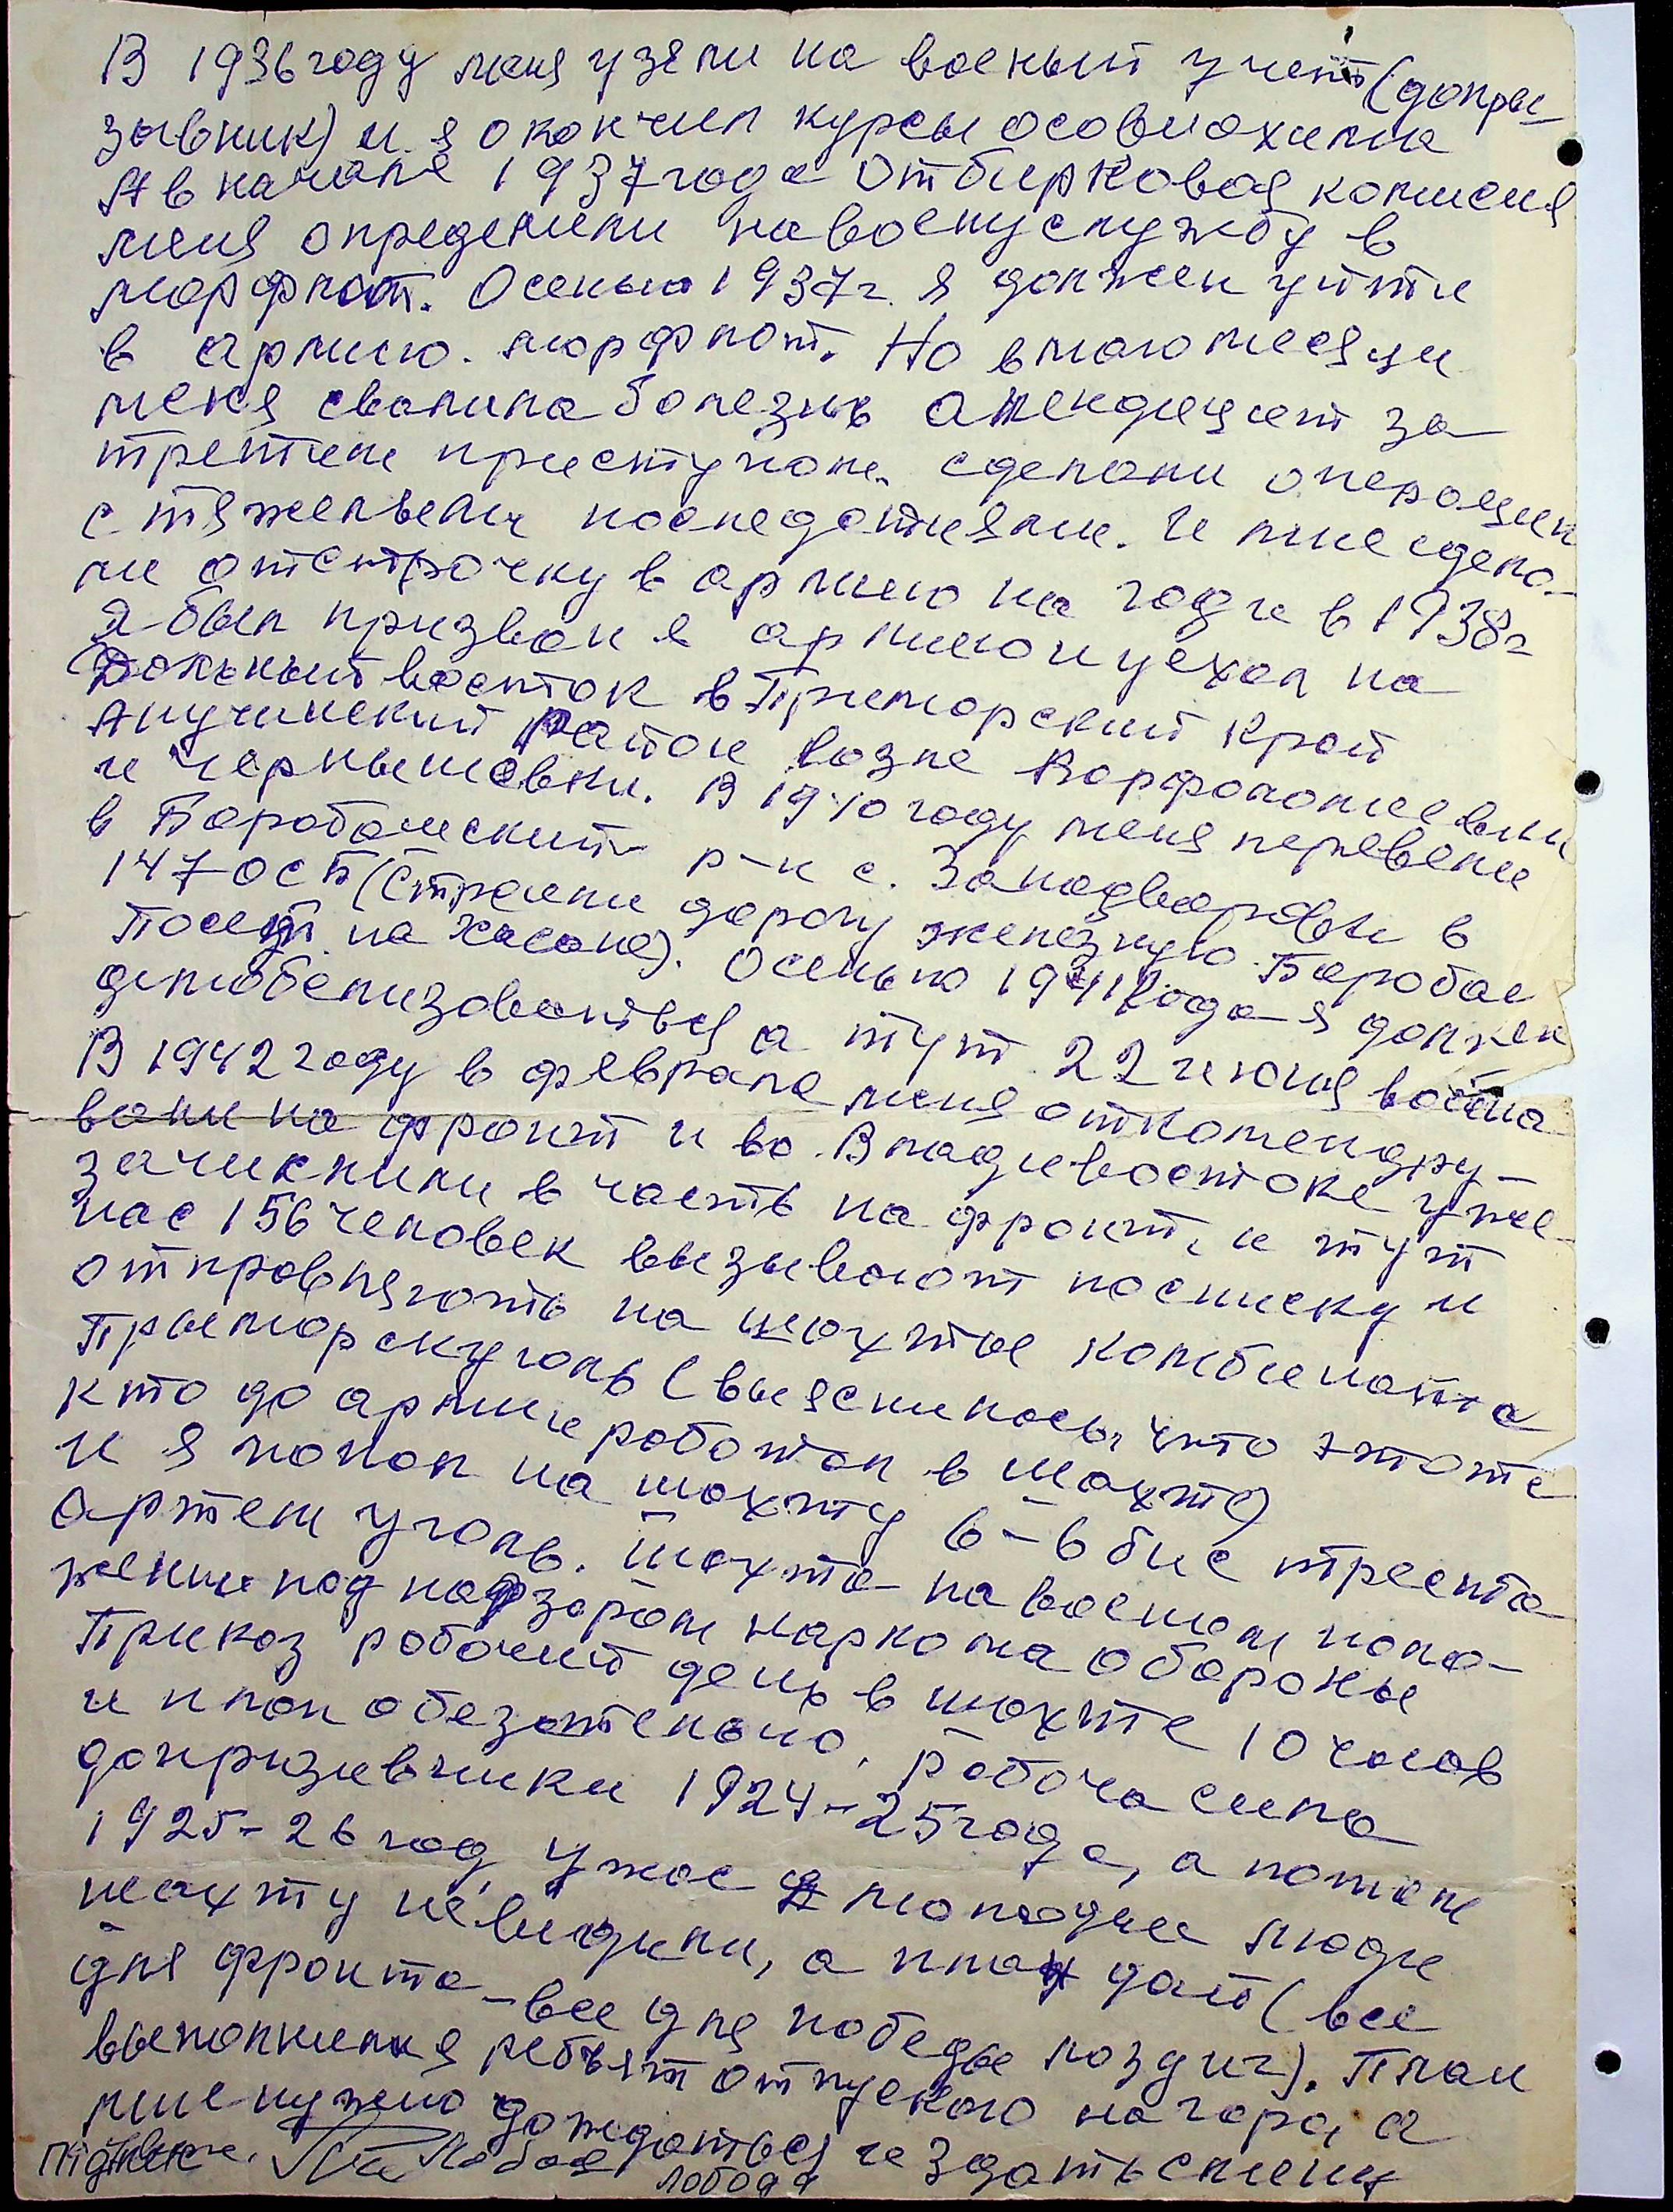 В 1936 году меня узяли на военый учет (допры-
зывник) и я окончил курсы осовиохима
А в начале 1937 года отбирковая комисия
меня определили на воену службу в
морфлот. Осенью 1937 г. я должен уйти
в армию. морфлот. Но в маю месяци
меня свалила болезнь апендецыт за
третим приступом. сделали операции
с тяжелыми последстиями. И мне сдела-
ли отстрочку в армию на год и в 1938 г
я был призван в армию и уехал на
Дальный восток в Приморский край
Анучинский район возле Ворфоломеевки
и Чернышовки. В 1940 году меня перевели
в Барабашский р-н с. Занадворовка в
147 ОСБ (строили дорогу железную Барабаш
Посет на Хасане). Осенью 1941 года я должен
демобелизоваться а тут 22 июня война
В 1942 году в феврале меня откомендру-
вали на фронт и во Владивостоке уже
зачислили в часть на фронт, и тут
нас 156 человек вызывают посписку и
отправляють на шахты комбината
Приморскуголь (выяснилось, что это те
кто до армии работал в шахте)
и я попал на шахту 6-6 бис треста
Артем уголь. Шахта на военом поло-
жении под надзором наркома обороны
Приказ рабочий день в шахте 10 часов
и план обезательно. Рабоча сила
допризывники 1924-25 года, а потом
1925-26 год, ужас молодые люди
шахту невидели, а план дай (все
для фронта - все для победы лозунг). План
выполнился ребят отпускаю нагора, а
мне нужно дождаться и здать смену
Лобода